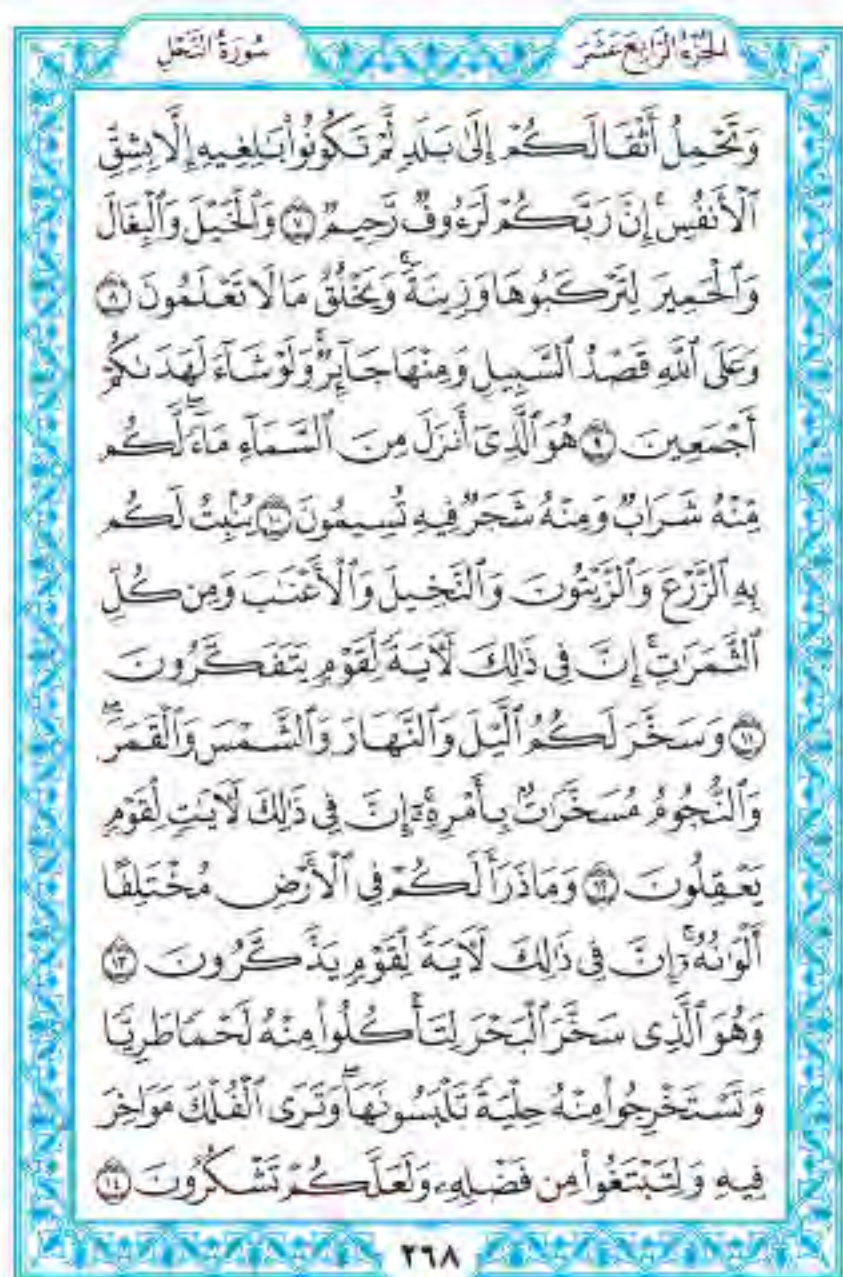 الجزء الرابع عشر
سورة النحل
وَتَحْمِلُ أَثْقَالَكُمْ إِلَىٰ بَلَدٍ لَّمْ تَكُونُوا۟ بَـٰلِغِيهِ إِلَّا بِشِقِّ
ٱلْأَنفُسِ ۚ إِنَّ رَبَّكُمْ لَرَءُوفٌ رَّحِيمٌ ٧ وَٱلْخَيْلَ وَٱلْبِغَالَ
وَٱلْحَمِيرَ لِتَرْكَبُوهَا وَزِينَةً ۚ وَيَخْلُقُ مَا لَا تَعْلَمُونَ ٨
وَعَلَى ٱللَّهِ قَصْدُ ٱلسَّبِيلِ وَمِنْهَا جَآئِرٌ ۚ وَلَوْ شَآءَ لَهَدَىٰكُمْ
أَجْمَعِينَ ٩ هُوَ ٱلَّذِىٓ أَنزَلَ مِنَ ٱلسَّمَآءِ مَآءً ۖ لَّكُم
مِّنْهُ شَرَابٌ وَمِنْهُ شَجَرٌ فِيهِ تُسِيمُونَ ١٠ يُنۢبِتُ لَكُم
بِهِ ٱلزَّرْعَ وَٱلزَّيْتُونَ وَٱلنَّخِيلَ وَٱلْأَعْنَـٰبَ وَمِن كُلِّ
ٱلثَّمَرَٰتِ ۗ إِنَّ فِى ذَٰلِكَ لَـَٔايَةً لِّقَوْمٍ يَتَفَكَّرُونَ
١١ وَسَخَّرَ لَكُمُ ٱلَّيْلَ وَٱلنَّهَارَ وَٱلشَّمْسَ وَٱلْقَمَرَ ۖ
وَٱلنُّجُومُ مُسَخَّرَٰتٌۢ بِأَمْرِهِۦٓ ۗ إِنَّ فِى ذَٰلِكَ لَـَٔايَـٰتٍ لِّقَوْمٍ
يَعْقِلُونَ ١٢ وَمَا ذَرَأَ لَكُمْ فِى ٱلْأَرْضِ مُخْتَلِفًا
أَلْوَٰنُهُۥٓ ۗ إِنَّ فِى ذَٰلِكَ لَـَٔايَةً لِّقَوْمٍ يَذَّكَّرُونَ ١٣
وَهُوَ ٱلَّذِى سَخَّرَ ٱلْبَحْرَ لِتَأْكُلُوا۟ مِنْهُ لَحْمًا طَرِيًّا
وَتَسْتَخْرِجُوا۟ مِنْهُ حِلْيَةً تَلْبَسُونَهَا ۖ وَتَرَى ٱلْفُلْكَ مَوَاخِرَ
فِيهِ وَلِتَبْتَغُوا۟ مِن فَضْلِهِۦ وَلَعَلَّكُمْ تَشْكُرُونَ ١٤
٢٦٨